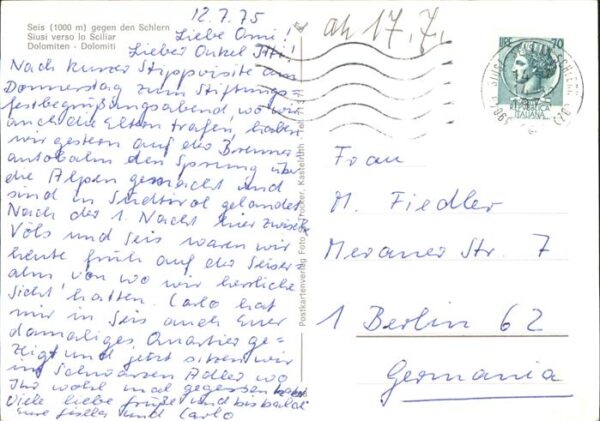 Seis (1000 m) gegen den Schlern
Siusi verso lo Sciliar
Dolomiten - Dolomiti
12.7.75
Liebe Omi!
Lieber Onkel
Nach kurzer Stippvisite am
Donnerstag zum Stiftungs-
festbegrüßungsabend, wo wir
auch die Eltern trafen, haben
wir gestern auf der Brenner
autobahn den Sprung über
die Alpen gemacht und
sind in Südtirol gelandet
Nach der 1. Nacht hier zwischen
Völs und Seis waren wir
heute früh auf der Seiser
alm, von wo wir herrliche
Sicht hatten. Carlo hat
mir in Seis auch Euer
damaliges Quartier ge-
zeigt und jetzt sitzen wir
im Schwarzen Adler wo
Ihr wohl mal gegessen habt
Viele liebe Grüße und bis bald
Eure und Carlo
Postkartenverlag Foto Trocker, Kastelruth - Tel.
ab 17.7.
70
ITALIANA
Frau
M. Fiedler
Meraner Str. 7
1 Berlin 62
Germania